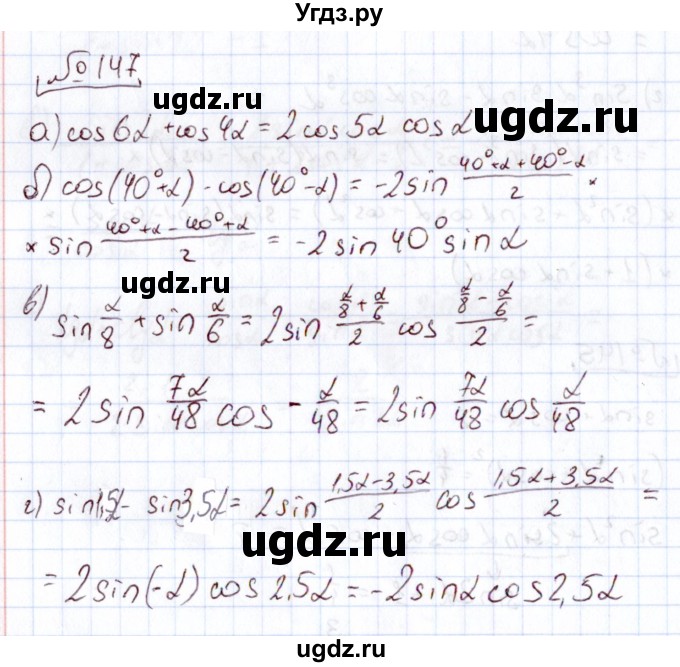 Угдз.ру
№ 147
ugdz.ru
а) cos 6α + cos 4α = 2 cos 5α cos α
ugdz.ru
б) cos(40° + α) - cos(40° - α) = -2 sin (40° + α + 40° - α)/2 ×
× sin (40° + α - 40° + α)/2 = -2 sin 40° sin α
ugdz.ru ugdz.ru
в) sin α/8 + sin α/6 = 2 sin (α/8 + α/6)/2 cos (α/8 - α/6)/2 =
= 2 sin 7α/48 cos - α/48 = 2 sin 7α/48 cos α/48
ugdz.ru
г) sin 1,5α - sin 3,5α = 2 sin (1,5α - 3,5α)/2 cos (1,5α + 3,5α)/2 =
ugdz.ru ugdz.ru
= 2 sin(-α) cos 2,5α = -2 sin α cos 2,5α
ugdz.ru